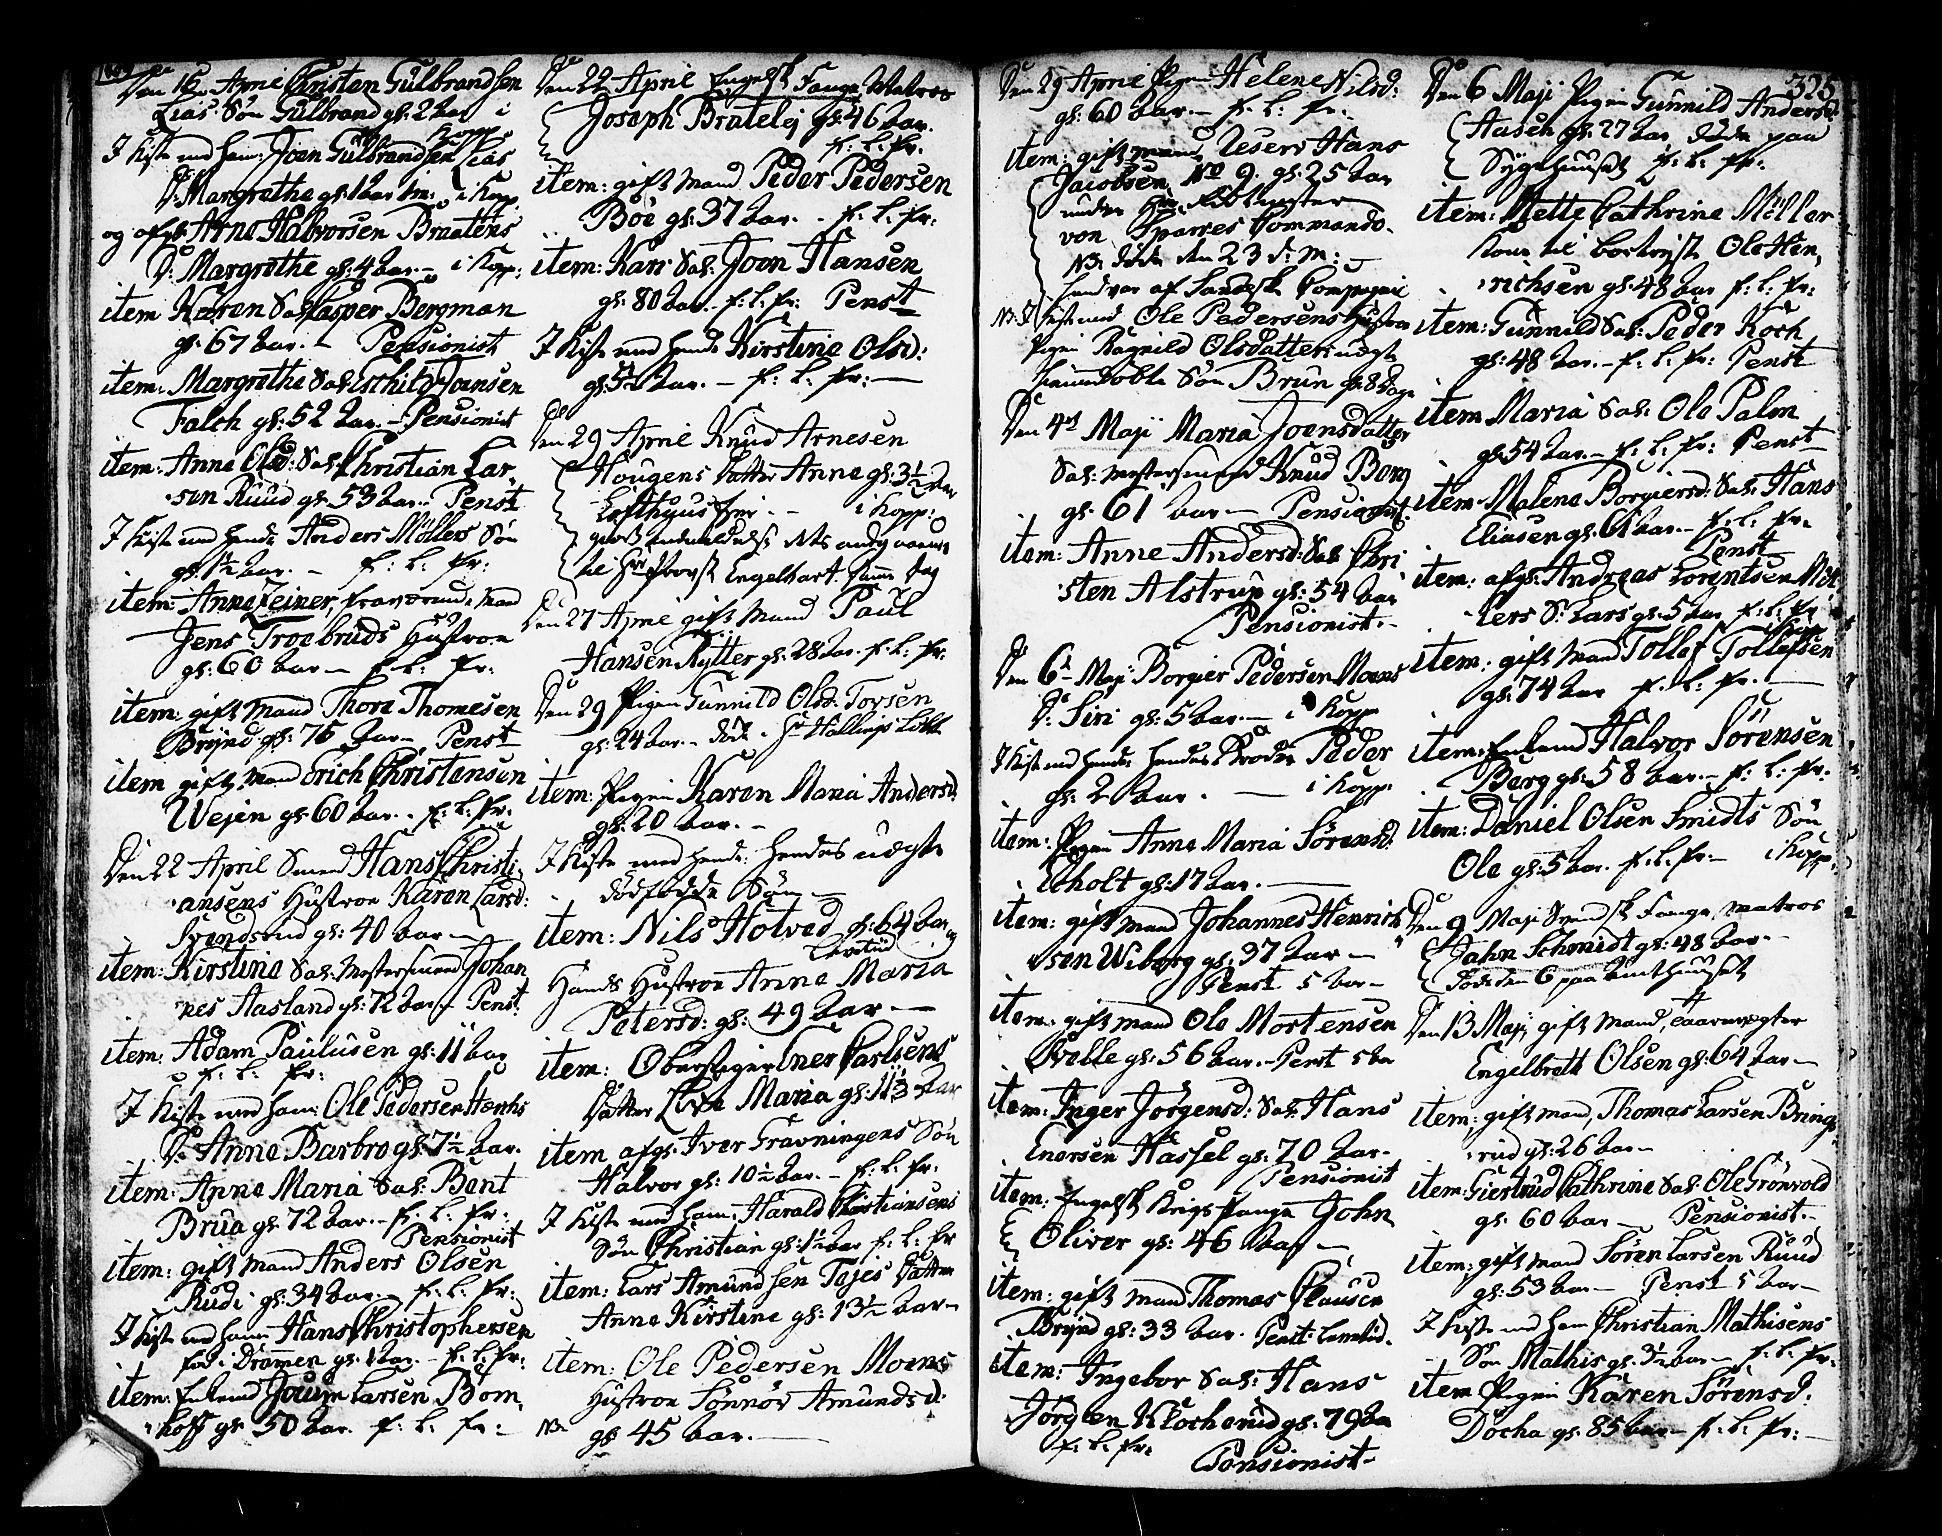 Den 15 April Christen Gulbrandsen
Lias Søn Gulbrand gl: 2 aar i
Kopp:
I Kiste med ham: Joen Gulbrandsen Lias
D: Margrethe gl: 1 aar i Kopp
og afgl: Arne Halvorsen Braatens
D: Margrethe gl: 4 aar – i Kopp:
item Karen Sal: Casper Bergman
gl: 67 aar. – Pensionist
item: Margrethe Sal: Joensen
Falch gl: 52 aar. – Pensionist
item: Anne Olsd: Sal: Christian Lar-
sen Ruud gl: 53 aar – Penst
I Kiste med hende Anders Möllers Søn
gl: 1½ aar. – f: L: fr:
item: Anne Zeiner, fraværende Mand
Jens Troebruds Hustroe
gl: 60 aar – f: L: fr:
item: gift Mand Thore Thomesen
Brynd gl: 75 aar – Penst
item gift Mand Erich Christensen
Wejen gl: 60 aar. – f: L: fr:
Den 22 April Smed Hans Christi-
ansens Hustroe Karen Larsd:
Svendsrud gl: 40 aar –
item: Kirstine Sal: Mestersmed Johan
nes Aasland gl: 72 aar – Penst:
item: Adam Paulusen gl: 11 aar
f: L: fr:
I Kiste med ham: Ole Pedersen
D: Anne Barbro gl: 7½ aar.
item: Anne Maria Sal: Bent
Brua gl: 72 aar – f: L: fr:
Pensionist
item: gift Mand Anders Olsen
Rudi gl: 34 aar – f: L: fr:
I Kiste med ham Hans Christophersen
fød i Drammen gl: 1 aar – f: L: fr:
item: Enkemd Joum Larsen Bom-
hoff gl: 50 aar. f: L: fr:
Den 22 April Engelsk Fange Matros
Joseph Brateley gl: 46 aar.
f: L: fr:
item: gift Mand Peder Pedersen
Böe gl: 37 aar. – f: L: fr:
item: Kari Sal: Joen Hansen
gl: 80 aar. f: L: fr: Penst
I Kiste med hende Kirstine Olsd:
gl: 5½ aar. – f: L: fr: –
Den 29 April Knud Arnesen
Hougens Datter Anne gl: 3½ aar
i Kopp:
Engelhart samme dag
Den 27 April gift Mand Paul
Hansen Rytter gl: 28 aar. f: L: fr:
Den 29 Pigen Gunnild Olsd: Torsen
gl: 24 aar. – døde
item: Pigen Karen Maria Andersd:
gl: 20 aar. –
I Kiste med hende: hendes uægte
dödfödde Søn –
item: Nils Hotved gl: 64 aar og
Hands Hustroe Anne Maria
Petersd: gl: 49 aar –
item: Oberstiger Ener Carlsens
Datter Maria gl: 11½ aar
item afgl: Iver Gravningens Søn
Halvor gl: 10½ aar. – f: L: fr:
I Kiste med ham: Harald Christiansens
Søn Christian gl: 1½ aar f: L: fr
item: Lars Amundsen Tajes Datter
Anne Kirstine gl: 13½ aar –
item: Ole Pedersen Moens
Hustroe Sönnöv Amundsd:
NB. gl: 45 aar. –
325
Den 29 April Pigen Helene Nilsd:
gl: 60 aar – f: L: fr:
item: gift Mand Hans
Jacobsen No 9. gl: 25 aar
under
von Sparres Commando.
NB. døde den 23 d: M: –
NB. I Kiste med Ole Pedersens Hustroe
Pigen Ragnild Olsdatters uægte
hiemmedöbte Søn Brun gl: 8 dage
Den 4de Maji Maria Joensdatter
Sal: Mestersmed Knud Borg
gl: 61 aar – Pensionist.
item: Anne Andersd: Sal: Chri
sten Alstrup gl: 54 aar
Pensionist. –
Den 6te Maji Borgier Pedersen Moens
D: Siri gl: 5 aar – i Kopp
I Kiste med hende hendes Broder Peder
gl: 2 aar. – i Kopp:
item: Pigen Anne Maria Sörensd:
Echolt gl: 17 aar. –
item: gift Mand Johannes Henrich
sen Wiborg gl: 37 aar –
Penst 5 aar –
item: gift Mand Ole Mortensen
gl: 56 aar. – Penst 5 aar
item: Inger Jörgensd: Sal: Hans
Enersen Hassel gl: 70 aar.
Pensionist
item: Engelsk Krigs Fange John
Oliver gl: 46 aar –
item: gift Mand Thomas Clausen
Brynd gl: 33 aar. Penst:
item: Ingebor Sal: Hans
Jörgen Klocherud gl: 79 aar
f: L: fr:
Pensionist –
Den 6 Maji Pigen Gunnild Andersd:
Aasen gl: 27 aar døde paa
Sygehuuset f: L: fr:
item: Mette Cathrine Möller
Ole Hen-
richsen gl: 48 aar f: L: fr:
item: Gunnild Sal: Peder Koch
gl: 48 aar. – f: L: fr: Penst
item Maria Sal: Ole Palm
gl: 54 aar – f: L: fr: Penst –
item: Malene Borgiersd: Sal: Hans
Eliasen gl: 61 aar – f: L: fr.
Penst
item: afgl: Andreas Lorentsen Möl
lers S: Lars gl: 5 aar f: L: fr
i Kopp
item: gift Mand Tollef Tollefsen
gl: 74 aar f: L: fr. –
item: Enkemd Halvor Sörensen
Berg gl: 58 aar – f: L: fr:
item: Daniel Olsen Smidts Søn
Ole gl: 5 aar. f: L: fr – i Kopp:
Den 9 Maji Svensk Fange, Matros
Jahn Schmidt gl: 48 aar. –
døde den 6 paa
Den 13 Maji gift Mand,
Engelbrett Olsen gl: 64 aar –
item: gift Mand, Thomas Larsen Bringe
rud gl: 26 aar –
item: Giertrud Cathrine Sal: Ole Grönvold
gl: 60 aar – Pensionist. –
item: gift Mand Sören Larsen Ruud
gl: 53 aar – Penst 5 aar –
I Kiste med ham Christian Mathisens
Søn Mathis gl: 3½ aar – f: L: fr:
item Pigen Karen Sörensd:
Döcha gl: 85 aar – f: L: fr: –